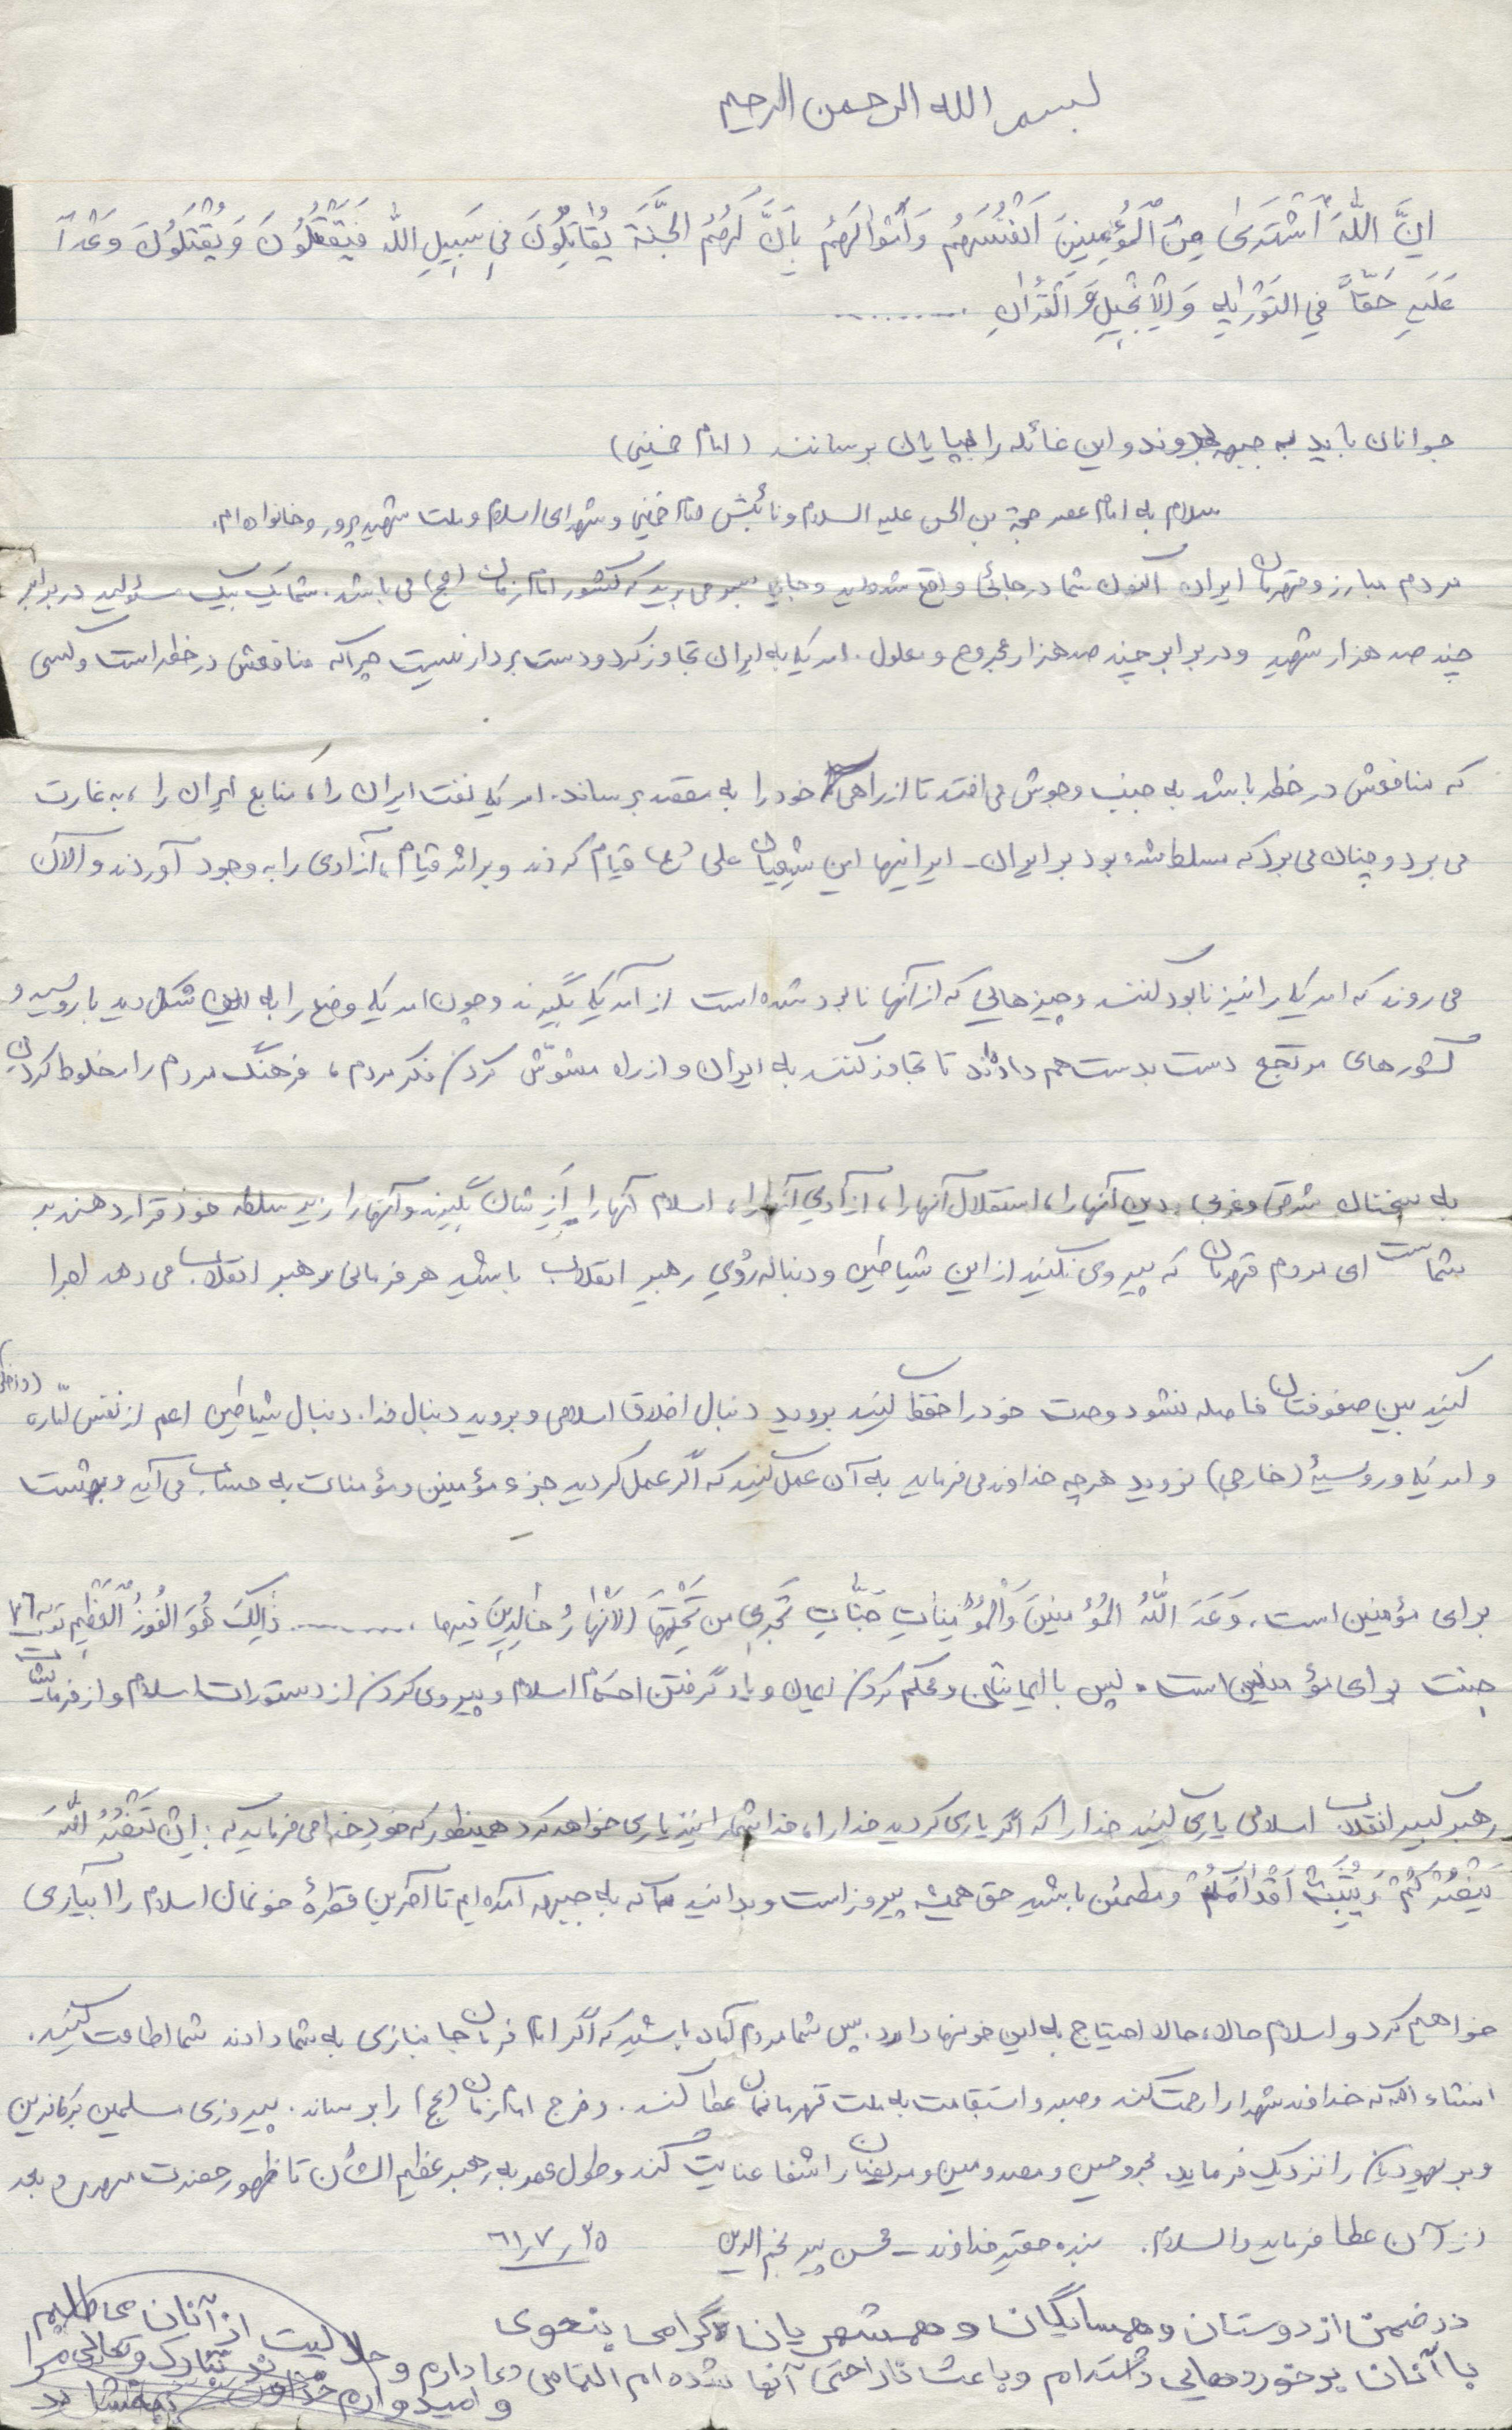 بسم الله الرحمن الرحیم
اِنَّ اللّهَ اشْتَرَىٰ مِنَ الْمُؤْمِنِینَ اَنْفُسَهُمْ وَ اَمْوٰالَهُمْ بِاَنَّ لَهُمُ الْجَنَّةَ یُقٰاتِلُونَ فِی سَبِیلِ اللّه فَیَقْتُلُونَ وَ یُقْتَلُونَ وَعْداً
عَلَیهِ حَقّاً فِی التَوْرٰیلهِ وَ الْاِنْجِیلِ وَ الْقُرْانِ ..........
جوانان باید به جبهه بروند و این غائله را بپایان برسانند (امام خمینی)
سلام بله امام عصر حجة بن الحسن علیه السلام و نائبش امام خمینی و شهدای اسلام و ملت شهید پرور و خانواده ام.
مردم مبارز و قهرمان ایران اکنون شما در جائی واقع شده‌اید و جایی بسر می برید که کشور امام زمان (عج) می باشد. شما یک بیک مسئولید در برابر
چند صد هزار شهید و در برابر چند صد هزار مجروح و معلول. امریکا به ایران تجاوز کرد و دست بردار نیست چرا که منافعش در خطر است و کسی
که منافعش در خطر باشد به جنب و جوش می افتد تا از راهی خود را به مقصد برساند. امریکا نفت ایران را، منابع ایران را، به غارت
می برد و چنان می برد که مسلط شده بود بر ایران - ایرانیها این شیعیان علی (ع) قیام کردند و بر اثر قیام، آزادی را به وجود آوردند و الآن
می روند که امریکا را نیز نابود کنند و چیزهایی که از آنها نابود شده است از آمریکا بگیرند و چون امریکا وضع را به این شکل دید با روسیه و
کشورهای مرتجع دست بدست هم داده‌اند تا تجاوز کنند به ایران و از راه مشوّش کردن فکر مردم، فرهنگ مردم را مخلوط کردن
به سخنان شرقی و غربی دین آنها را، استقلال آنها را، آزادی آنها را، اسلام آنها را ازشان بگیرند و آنها را زیر سلطه خود قرار دهند بر
شماست ای مردم قهرمان که پیروی نکنید از این شیاطین و دنباله رؤی رهبر انقلاب باشید هر فرمانی رهبر انقلاب می دهد اجرا
کنید بین صفوفتان فاصله نشود وحدت خود را حفظ کنید بروید دنبال اخلاق اسلامی و بروید دنبال خدا. دنبال شیاطین اعم از نفس امّاره (داخلی)
و امریکا و روسیهٔ (خارجی) نروید هر چه خداوند می فرماید به آن عمل کنید که اگر عمل کردید جزء مؤمنین و مؤمنات به حساب می آید و بهشت
برای مؤمنین است. وَعَدَ اللّهُ الْمُؤْمِنِینَ وَ الْمُؤْمِنٰاتِ جَنّٰاتٍ تَجْرِی مِن تَحْتِهَا الْاَنْهٰارُ خٰالِدِینَ فِیهٰا .......... ذٰلِکَ هُوَ الْفَوْزُ الْعَظِیمُ توبه ۷۲
جنت برای مؤمنین است. پس با ایمانتان و محکم کردن ایمان و یاد گرفتن احکام اسلام و پیروی کردن از دستورات اسلام و از فرمایشات
رهبر کبیر انقلاب اسلامی یاری کنید خدا را که اگر یاری کردید خدا را، خدا شما را نیز یاری خواهد کرد همینطور که خود خدا می فرماید که: اِنْ تَنْصُرُ اللّهَ
یَنْصُرْکُمْ وَ یُثَبِّتْ اَقْدٰامَکُمْ و مطمئن باشید حق همیشه پیروز است و بدانید ما که به جبهه آمده ایم تا آخرین قطرهٔ خونمان اسلام را ابیاری
خواهیم کرد و اسلام حالا، حالا احتیاج به این خونها دارد. پس شما مردم آماده باشید که اگر امام فرمان جانبازی به شما دادند شما اطاعت کنید.
انشاء الله که خداوند شهدا را رحمت کند و صبر و استقامت به ملت قهرمانمان عطا کند. و فرج امام زمان (عج) را برساند. پیروزی مسلمین بر کافرین
و بر یهودیان را نزدیک فرماید. مجروحین و مصدومین و مریضان را شفا عنایت کند و طول عمر به رهبر عظیم الشأن تا ظهور حضرت مهدی و بعد
از آن عطا فرماید والسلام. بنده حقیر خداوند - محسن پیر نجم الدین ۶۱٫۷٫۲۵
در ضمن از دوستان و همسایگان و همشهریان گرامی بنحوی
با آنان برخوردهایی داشته‌ام و باعث ناراحتی آنها شده ام التماس دعا دارم و حلالیت از آنان می‌طلبم
و امیدوارم خداوند تبارک و تعالی مرا ببخشاید